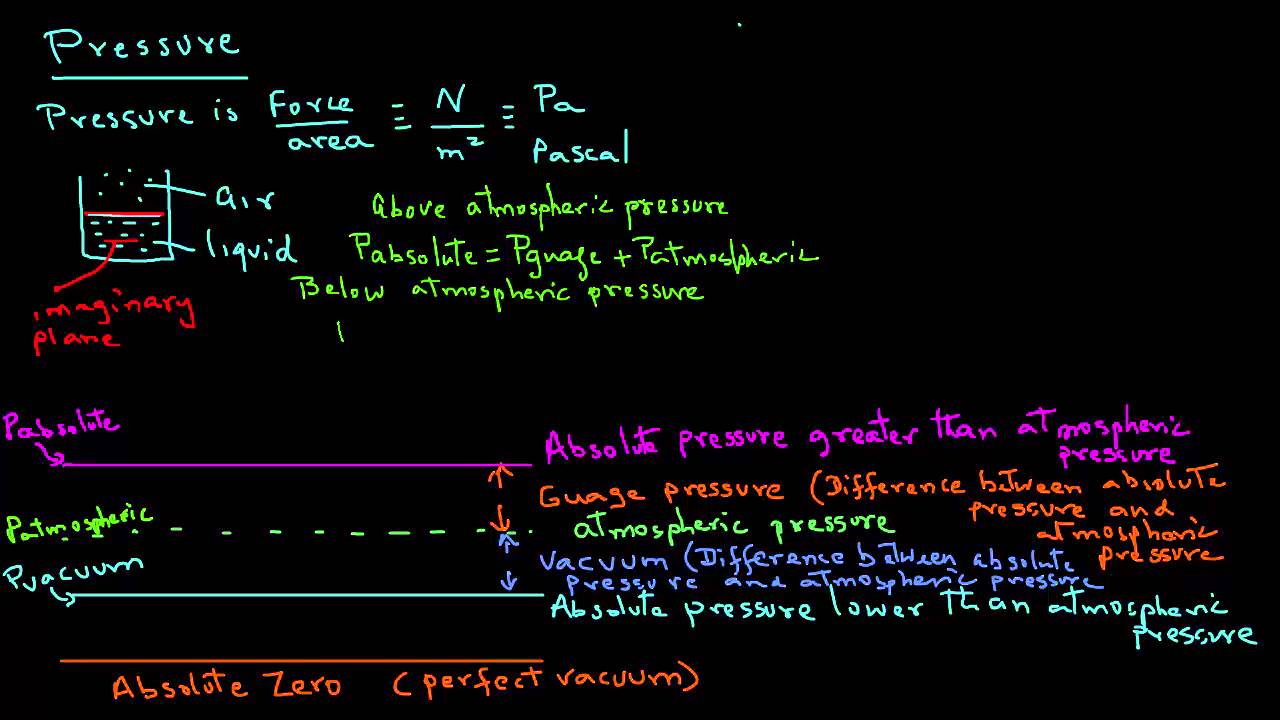 Pressure
Pressure is Force/area ≡ N/m² ≡ Pa
Pascal
air
liquid
imaginary
plane
Above atmospheric pressure
Pabsolute = Pguage + Patmospheric
Below atmospheric pressure
Pabsolute
Absolute pressure greater than atmospheric
pressure
Guage pressure (Difference between absolute
pressure and
atmospheric
pressure
Patmospheric
atmospheric pressure
Pvacuum
Vacuum (Difference between absolute
pressure and atmospheric pressure
Absolute pressure lower than atmospheric
pressure
Absolute Zero (perfect vacuum)